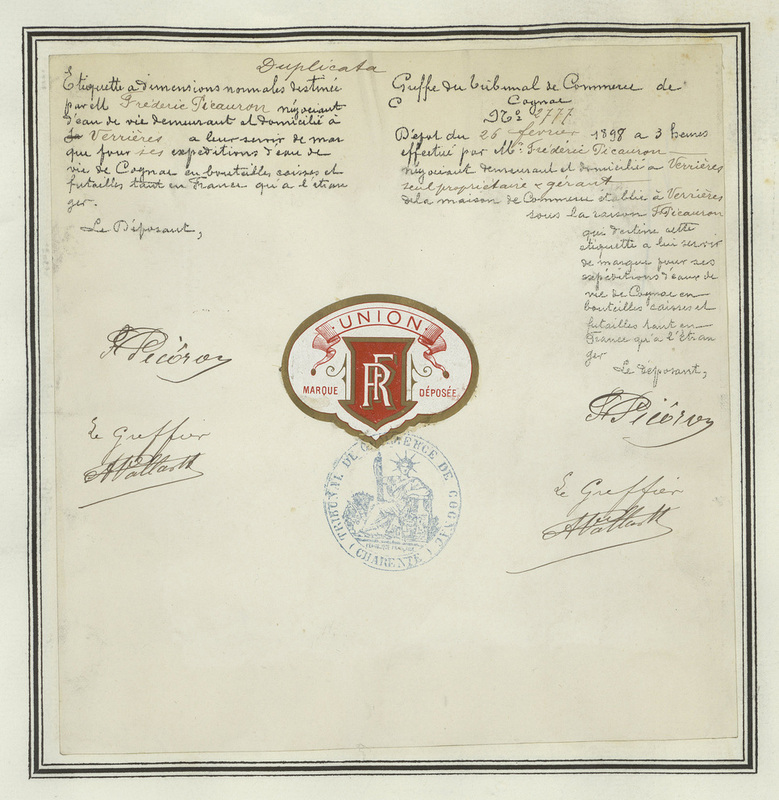 Duplicata
Etiquette a dimensions normales destinée
par M Frédéric Picauron négociant
d'eau de vie demeurant et domicilié à
Verrières a leur servir de mar
que pour ses expéditions d'eau de
vie de Cognac en bouteilles caisses et
futailles tant en France qu'a l'etran
ger.
Le Déposant,
F Picôron
Le Greffier
Greffe du Tribunal de Commerce de
C Cognac
N° 2777
Dépot du 26 février 1898 a 3 heures
effectué par Mr Frédéric Picauron
négociant demeurant et domicilié a Verrières
seul propriétaire & gérant
de la maison de Commerce établie à Verrières
sous la raison F Picauron
qui destine cette
étiquette a lui servir
de marque pour ses
expéditions d'eaux de
vie de Cognac en
bouteilles caisses et
futailles tant en
France qu'a l'étran
ger
Le déposant,
F Picôron
Le Greffier
UNION
FR
MARQUE DÉPOSÉE
TRIBUNAL DE COMMERCE DE COGNAC
(CHARENTE)